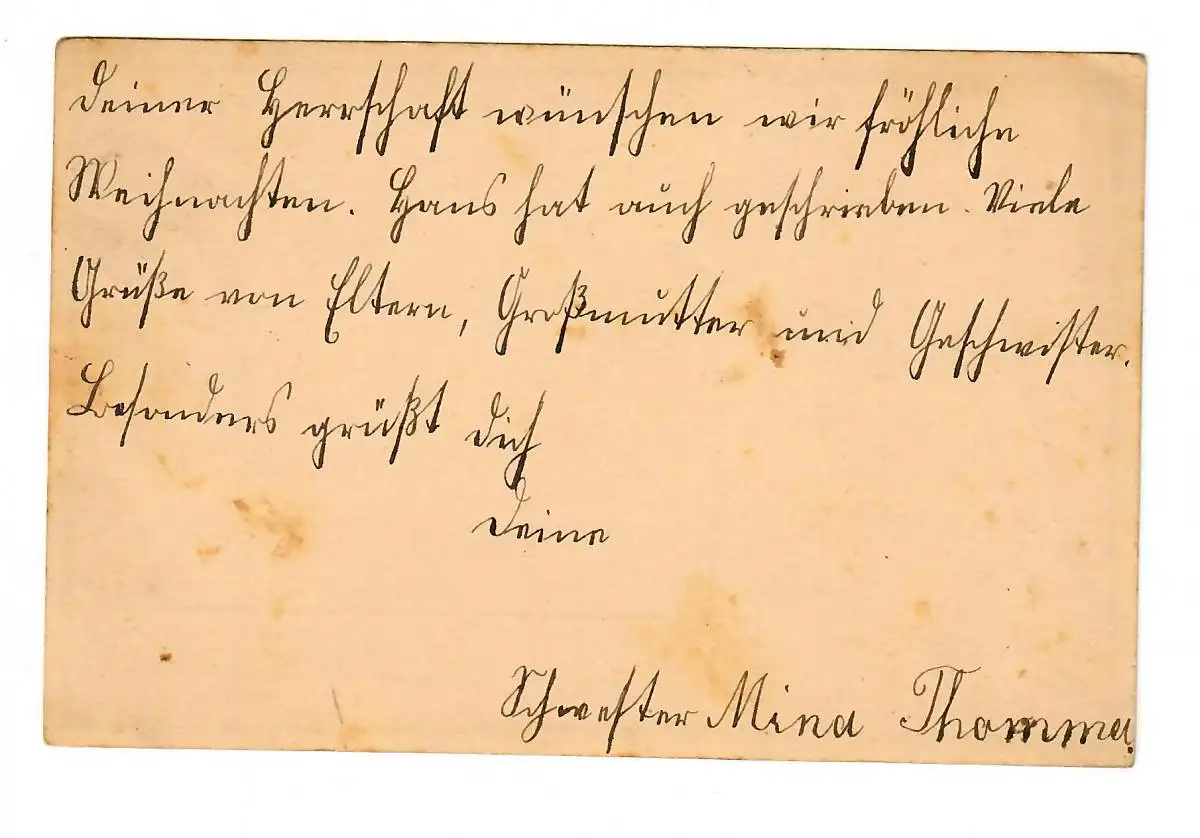 deiner Herrschaft wünschen wir fröhliche
Weihnachten. Hans hat auch geschrieben. Viele
Grüße von Eltern, Großmutter und Geschwister.
Besonders grüßt dich
deine
Schwester Mina Thomma.